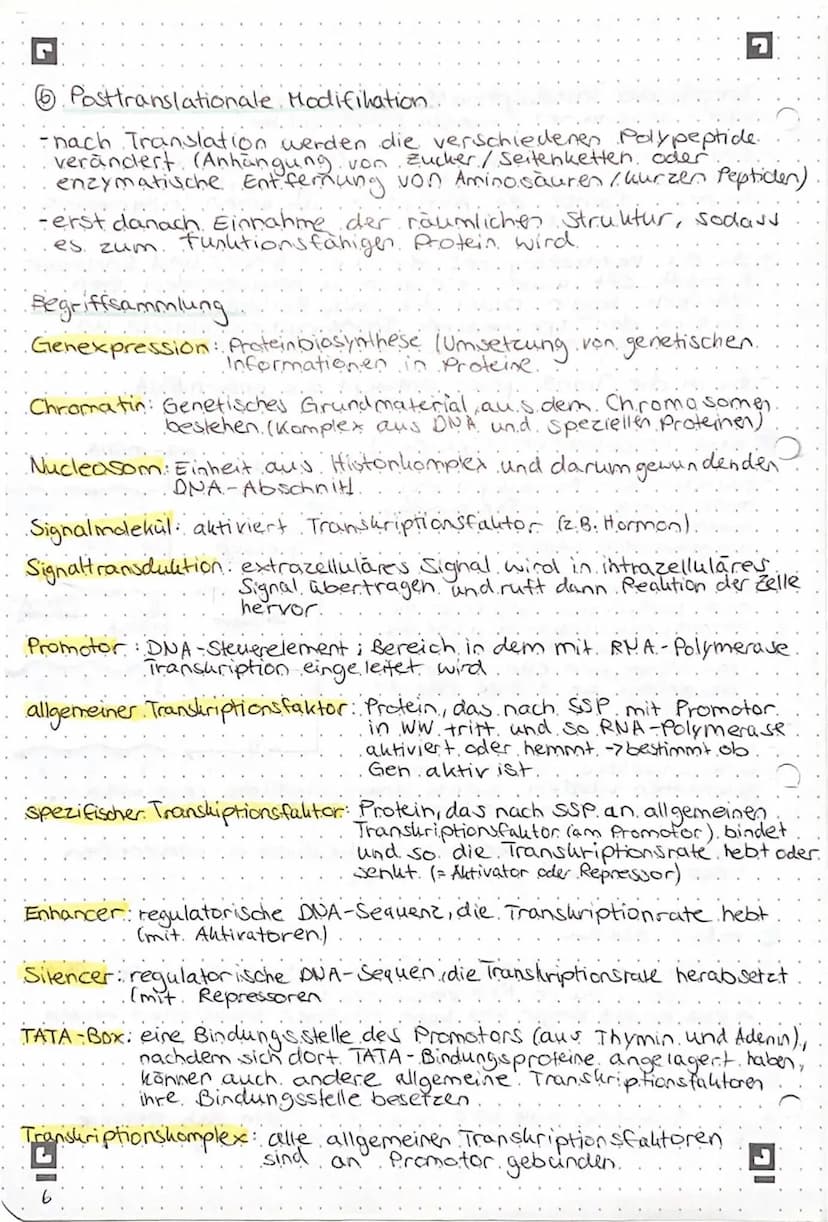 ⑥ Posttranslationale Modifikation
- nach Translation werden die verschiedenen Polypeptide
verändert (Anhängung von Zucker/Seitenketten oder
enzymatische Entfernung von Aminosäuren/kurzen Peptiden)
- erst danach Einnahme der räumlichen Struktur, sodass
es zum funktionsfähigen Protein wird
Begriffsammlung
Genexpression: Proteinbiosynthese (Umsetzung von genetischen
Informationen in Proteine
Chromatin: Genetisches Grundmaterial, aus dem Chromosomen
bestehen (Komplex aus DNA und speziellen Proteinen)
Nucleosom: Einheit aus Histonkomplex und darum gewundenden
DNA-Abschnitt
Signalmolekül: aktiviert Transkriptionsfaktor (z.B. Hormon)
Signaltransduktion: extrazelluläres Signal wird in intrazelluläres
Signal übertragen und ruft dann Reaktion der Zelle
hervor
Promotor: DNA-Steuerelement; Bereich in dem mit RNA-Polymerase
Transkription eingeleitet wird
allgemeiner Transkriptionsfaktor: Protein, das nach SSP mit Promotor
in WW tritt und so RNA-Polymerase
aktiviert oder hemmt -> bestimmt ob
Gen aktiv ist
spezifischer Transkiptionsfaktor: Protein, das nach SSP an allgemeinen
Transkriptionsfaktor (am Promotor) bindet
und so die Transkriptionsrate hebt oder
senkt (= Aktivator oder Repressor)
Enhancer: regulatorische DNA-Sequenz, die Transkriptionrate hebt
(mit Aktivatoren)
Silencer: regulatorische DNA-Sequen, die Transkriptionsrate herabsetzt
(mit Repressoren
TATA-Box: eine Bindungsstelle des Promotors (aus Thymin und Adenin),
nachdem sich dort TATA-Bindungsproteine angelagert haben,
können auch andere allgemeine Transkriptionsfaktoren
ihre Bindungsstelle besetzen
Transkriptionskomplex: alle allgemeinen Transkriptionsfaktoren
sind an Promotor gebunden
6